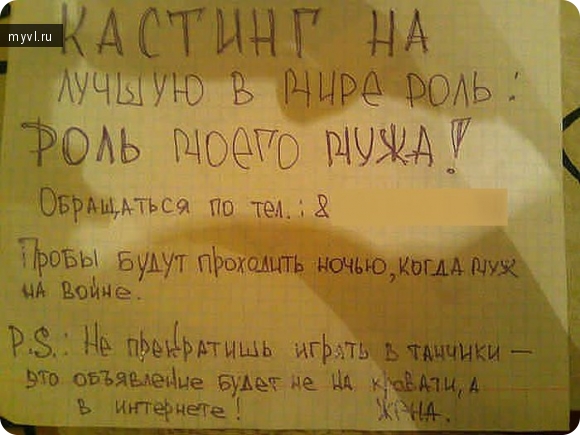 myvl.ru
КАСТИНГ НА
ЛУЧШУЮ В МИРЕ РОЛЬ:
РОЛЬ МОЕГО МУЖА!
ОБРАЩАТЬСЯ ПО ТЕЛ.: 8
ПРОБЫ БУДУТ ПРОХОДИТЬ НОЧЬЮ, КОГДА МУЖ
НА ВОЙНЕ.
P.S.: НЕ ПРЕКРАТИШЬ ИГРАТЬ В ТАНЧИКИ —
ЭТО ОБЪЯВЛЕНИЕ БУДЕТ НЕ НА КРОВАТИ, А
В ИНТЕРНЕТЕ! ЖЕНА.